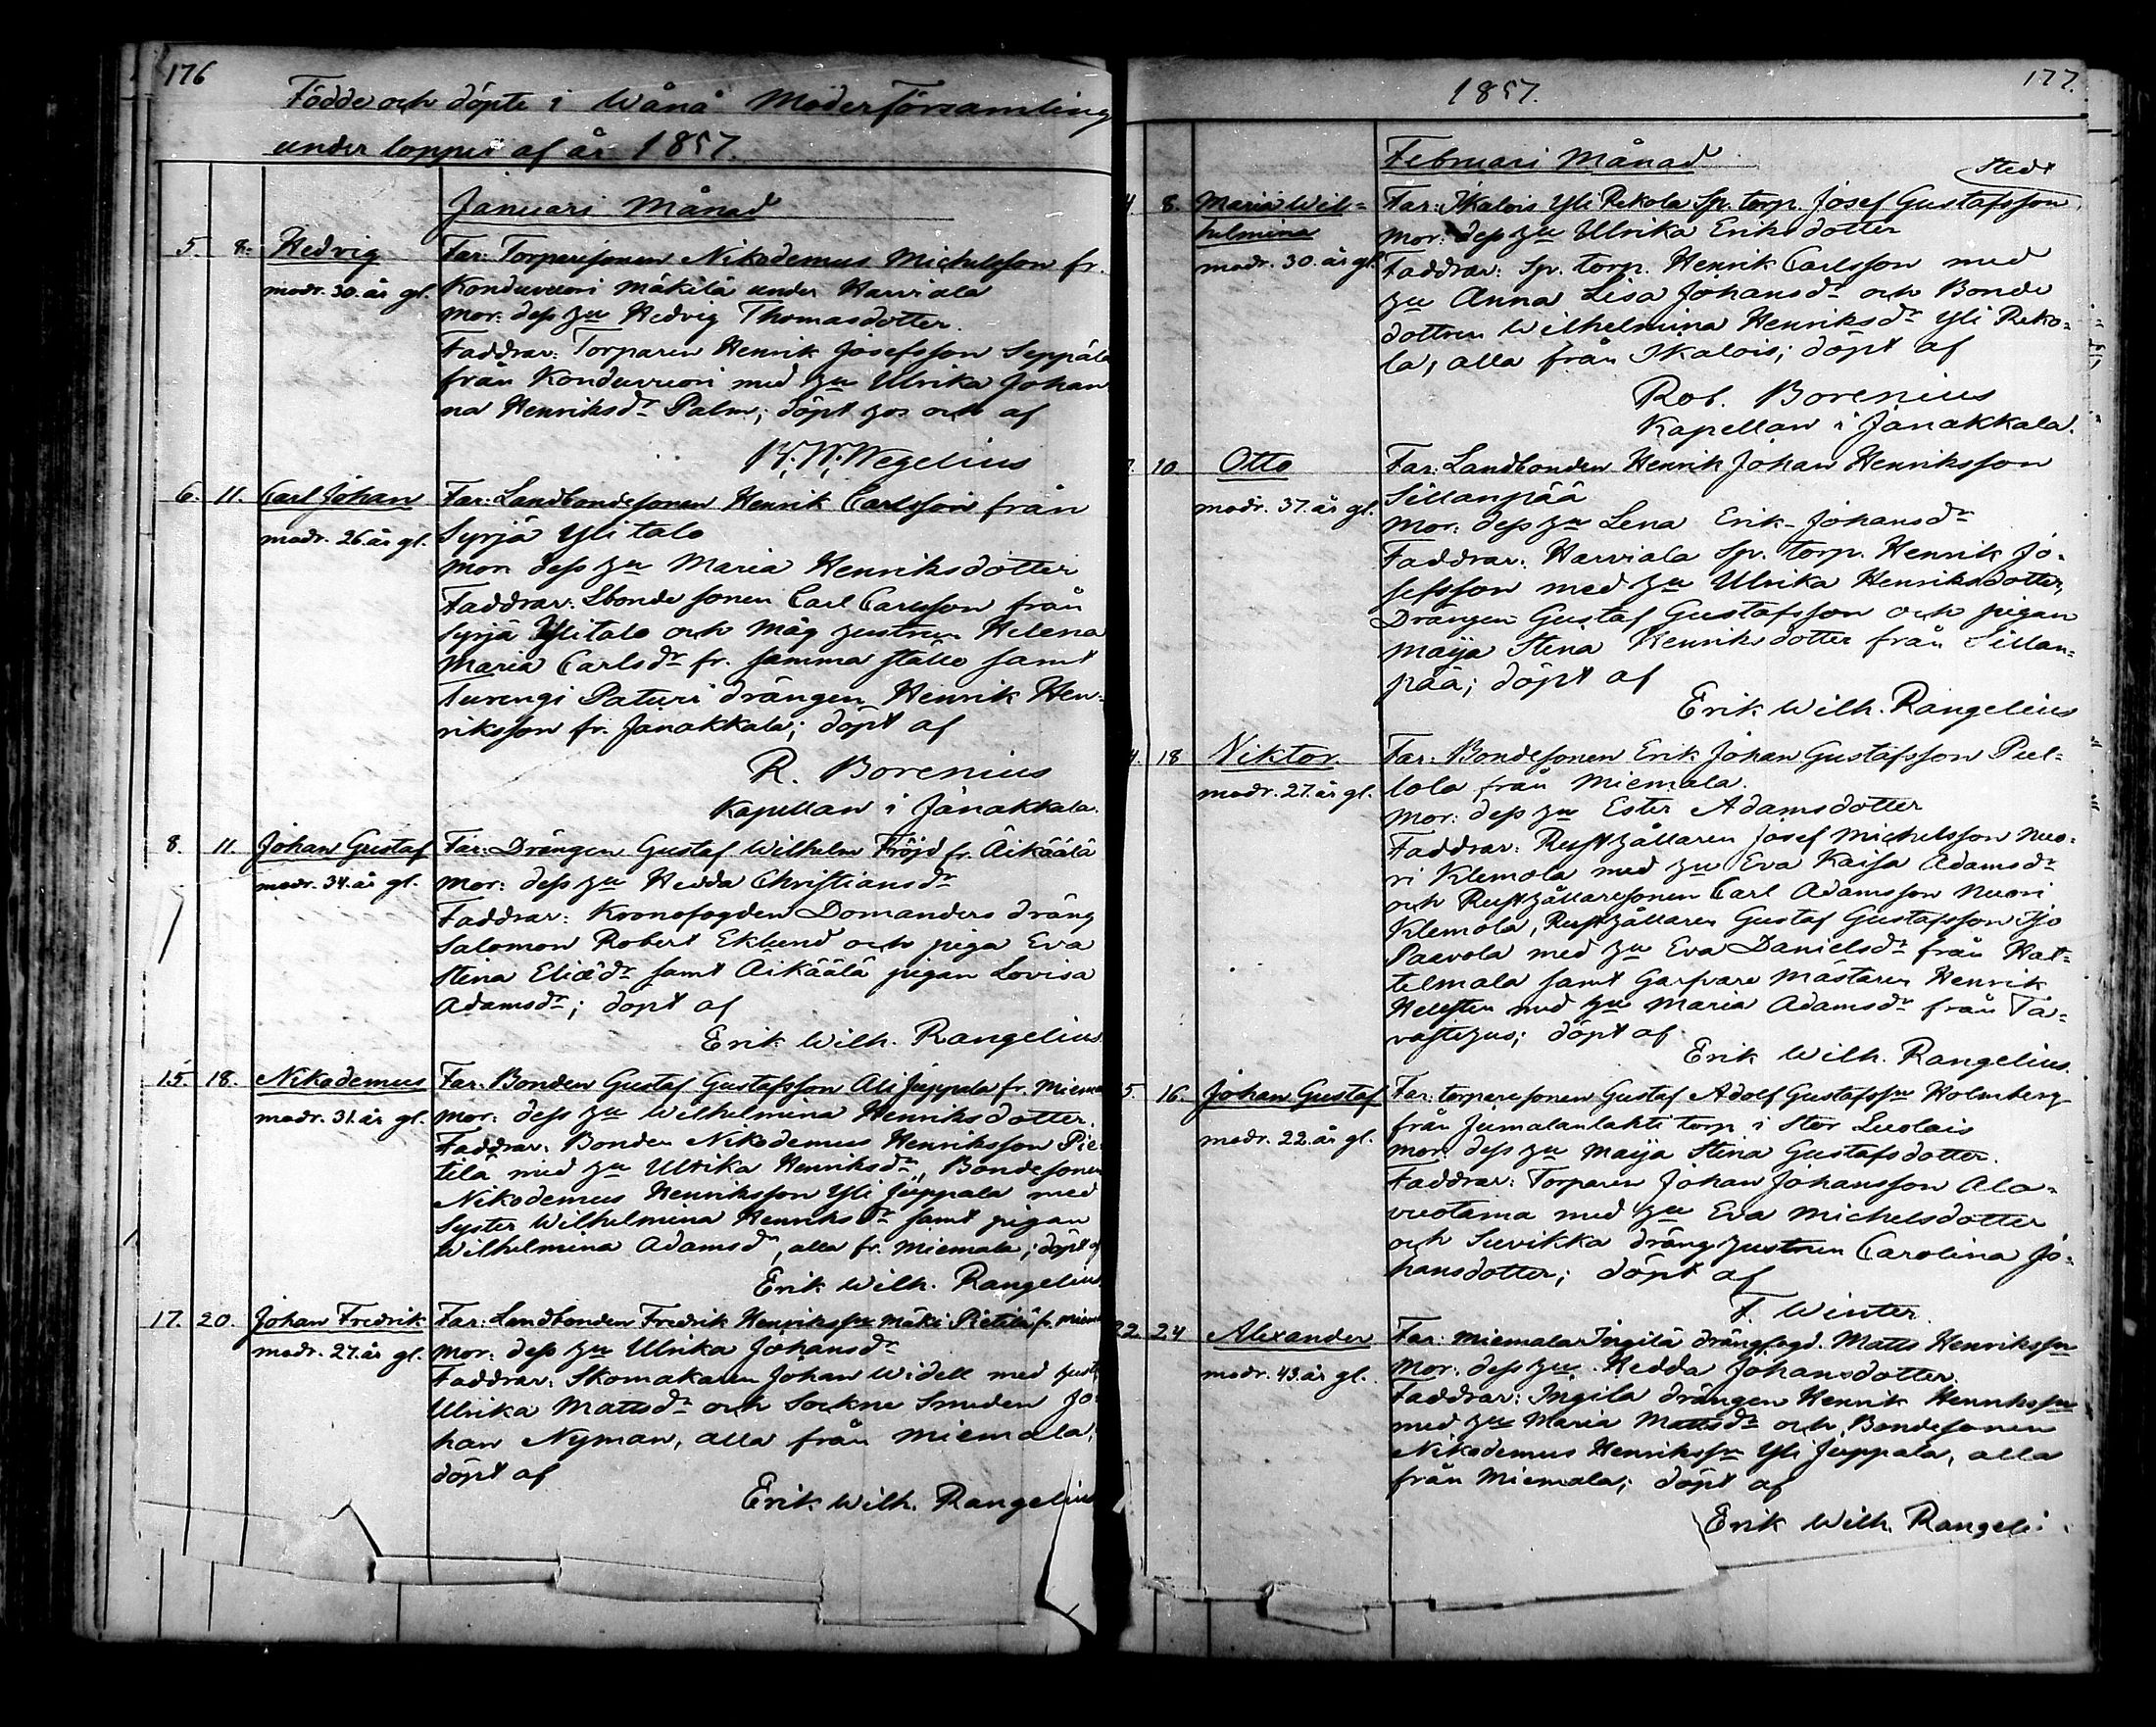 176
Födde och döpte i Wånå Moderförsamling
under loppet af år 1857.
Januari Månad
5. 8. Hedvig Far: Torparesonen Nikodemus Michelsson fr.
modr. 30. år gl. Konduvuori Mäkilä under Harviala
Mor: dess hu Hedvig Thomasdotter.
Faddrar: Torparen Henrik Josefsson Seppälä
från Konduvuori med hu Ulrika Johan
na Henriksdr Palm; döpt hos och af
Wegelius
6. 11. Carl Johan Far: Landbondesonen Henrik Carlsson från
modr. 26. år gl. Syrjä Ylitalo
Mor: dess hu Maria Henriksdotter
Faddrar: Lbonde sonen Carl Carlsson från
Syrjä Ylitalo och Måg hustrun Helena
Maria Carlsdr fr. samma ställe samt
Turengi Paturi drängen Henrik Hen-
riksson fr. Janakkala; döpt af
R. Borenius
Kapellan i Janakkala.
8. 11. Johan Gustaf Far: Drängen Gustaf Wilhelm Fröjd fr. Äikäälä
modr. 34. år gl. Mor: dess hu Hedda Christiansdr
Faddrar: Kronofogden Domanders dräng
Salomon Robert Eklund och piga Eva
Stina Eliædr samt Äikäälä pigan Lovisa
Adamsdr; döpt af
Erik Wilh. Rangelius
15. 18. Nikodemus Far: Bonden Gustaf Gustafsson Ali Juppala fr. Miema
modr. 31. år gl. Mor: dess hu Wilhelmina Henriksdotter.
Faddrar: Bonden Nikodemus Henriksson Pie
tilä med hu Ulrika Henriksdr, Bondesonen
Nikodemus Henriksson Yli Juppala med
Syster Wilhelmina Henriksdr samt pigan
Wilhelmina Adamsdr, alla fr. Miemala; döpt af
Erik Wilh. Rangelius
17. 20. Johan Fredrik Far: Landbonden Fredrik Henrikssn Mäki Pietilä fr. Miem
modr. 27. år gl. Mor: dess hu Ulrika Johansdr
Faddrar: Skomakaren Johan Widell med hust
Ulrika Mattsdr och Sockne Smeden Jo
han Nyman, alla från Miemala;
döpt af
Erik Wilh. Rangelius
1857. 177.
Februari Månad
stedt
4. 8. Maria Wil= Far: Ikalois Yli Rekola Sp. torp. Josef Gustafsson
helmina Mor: dess hu Ulrika Eriksdotter
modr. 30. år gl. Faddrar: Sp. torp. Henrik Carlsson med
hu Anna Lisa Johansdr och Bonde
dottren Wilhelmina Henriksdr Yli Reko=
la, alla från Ikalois; döpt af
Rob. Borenius
Kapellan i Janakkala.
10 Otto Far: Landbonden Henrik Johan Henriksson
modr. 37. år gl. Sillanpää
Mor: dess hu Lena Erik-Johansdr
Faddrar: Harviala Sp. torp. Henrik Jo-
sefsson med hu Ulrika Henriksdotter,
Drängen Gustaf Gustafsson och pigan
Maija Stina Henriksdotter från Sillan=
pää; döpt af
Erik Wilh. Rangelius
4. 18 Viktor. Far: Bondesonen Erik Johan Gustafsson Peel-
modr. 27. år gl. lola från Miemala.
Mor: dess hu Ester Adamsdotter
Faddrar: Rusthållaren Josef Michelsson Nuo-
ri Klemola med hu Eva Kaisa Adamsdr
och Rusthållaresonen Carl Adamsson Nuori
Klemola, Rusthållaren Gustaf Gustafsson Iso
Paavola med hu Eva Danielsdr från Hat=
telmala samt Garfvare Mästaren Henrik
Hellsten med hu Maria Adamsdr från Ta=
vastehus; döpt af
Erik Wilh. Rangelius.
5. 16. Johan Gustaf Far: torparesonen Gustaf Adolf Gustafssn Holmberg
modr. 22. år gl. från Jumalanlahti torp i Stor Luolais
Mor: dess hu Maija Stina Gustafsdotter.
Faddrar: Torparen Johan Johansson Ala=
vuotama med hu Eva Michelsdotter
och Suvikka dräng hustrun Carolina Jo-
hansdotter; döpt af
F. Winter.
22. 24 Alexander Far: Miemala Ingilä drängfogd. Matts Henrikssn
modr. 43. år gl. Mor: dess hu Hedda Johansdotter.
Faddrar: Ingilä drängen Henrik Henrikssn
med hu Maria Mattsdr och Bondesonen
Nikodemus Henrikssn Yli Juppala, alla
från Miemala; döpt af
Erik Wilh. Rangeli